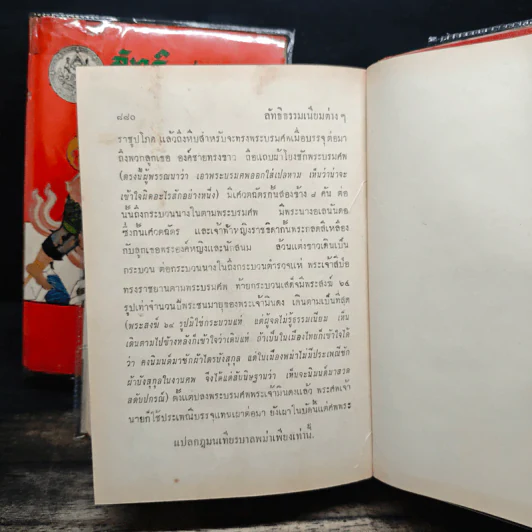 ลัทธิ
๘๘๐
ลัทธิธรรมเนียมต่าง ๆ
ราชูปโภค แล้วถึงหีบสำหรับจะทรงพระบรมศพเมื่อบรรจุต่อมา
ถึงพวกลูกเธอ องค์ชายทรงขาว ถือแถบผ้าโยงชักพระบรมศพ
(ตรงนี้ผู้พรรณนาว่า เอาพระบรมศพออกใส่เปลหาม เห็นว่าน่าจะ
เข้าใจผิดอะไรสักอย่างหนึ่ง) มีเศวตฉัตรกั้นสองข้าง ๘ คัน ต่อ
นั้นถึงกระบวนนางในตามพระบรมศพ มีพระนางอเลนันดอ
ซึ่งกั้นเศวตฉัตร และเจ้าฟ้าหญิงราชธิดากั้นพระกลดสีเหลือง
กับลูกเธอพระองค์หญิงและนักสนม ล้วนแต่งขาวเดินเป็น
กระบวน ต่อกระบวนนางในถึงกระบวนตำรวจแห่ พระเจ้าสีป่อ
ทรงราชยานตามพระบรมศพ ท้ายกระบวนเสด็จมีพระสงฆ์ ๖๔
รูปเท่าจำนวนปีพระชนมายุของพระเจ้ามินดง เดินตามเป็นที่สุด
(พระสงฆ์ ๖๔ รูปมิใช่กระบวนแห่ แต่ผู้จดไม่รู้ธรรมเนียม เห็น
เดินตามไปข้างหลังก็เข้าใจว่าเดินแห่ ถ้าเป็นในเมืองไทยก็เข้าใจได้
ว่า คงนิมนต์มาชักผ้าไตรบังสุกุล แต่ในเมืองพม่าไม่มีประเพณีชัก
ผ้าบังสุกุลในงานศพ จึงได้แต่สันนิษฐานว่า เห็นจะนิมนต์มาสวด
สดับปกรณ์) ตั้งแต่ปลงพระบรมศพพระเจ้ามินดงแล้ว พระศพเจ้า
นายก็ใช้ประเพณีบรรจุแทนเผาต่อมา ยังเผาในบัดนี้แต่ศพพระ
แปลกฎมนเทียรบาลพม่าเพียงเท่านี้.